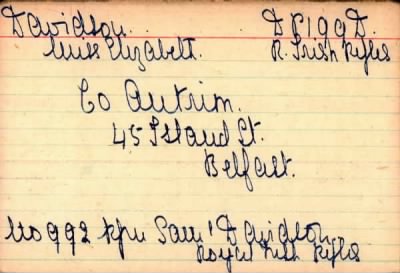 Davidson. D R199D.
Miss Elizabeth. R. Irish Rifles
Co Antrim.
45 Island St.
Belfast.
No 992 Rfn Saml Davidson.
Royal Irish Rifles